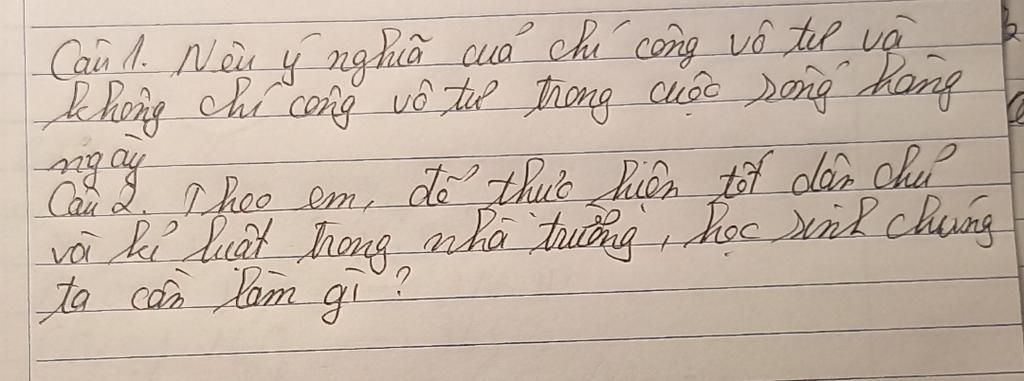 Câu 1. Nêu ý nghĩa cuả chí công vô tư và
không chí công vô tư trong cuộc sống hàng
ngày
Câu 2. Theo em, để thực hiện tốt dân chủ
và kỉ luật trong nhà trường, học sinh chúng
ta cần làm gì?